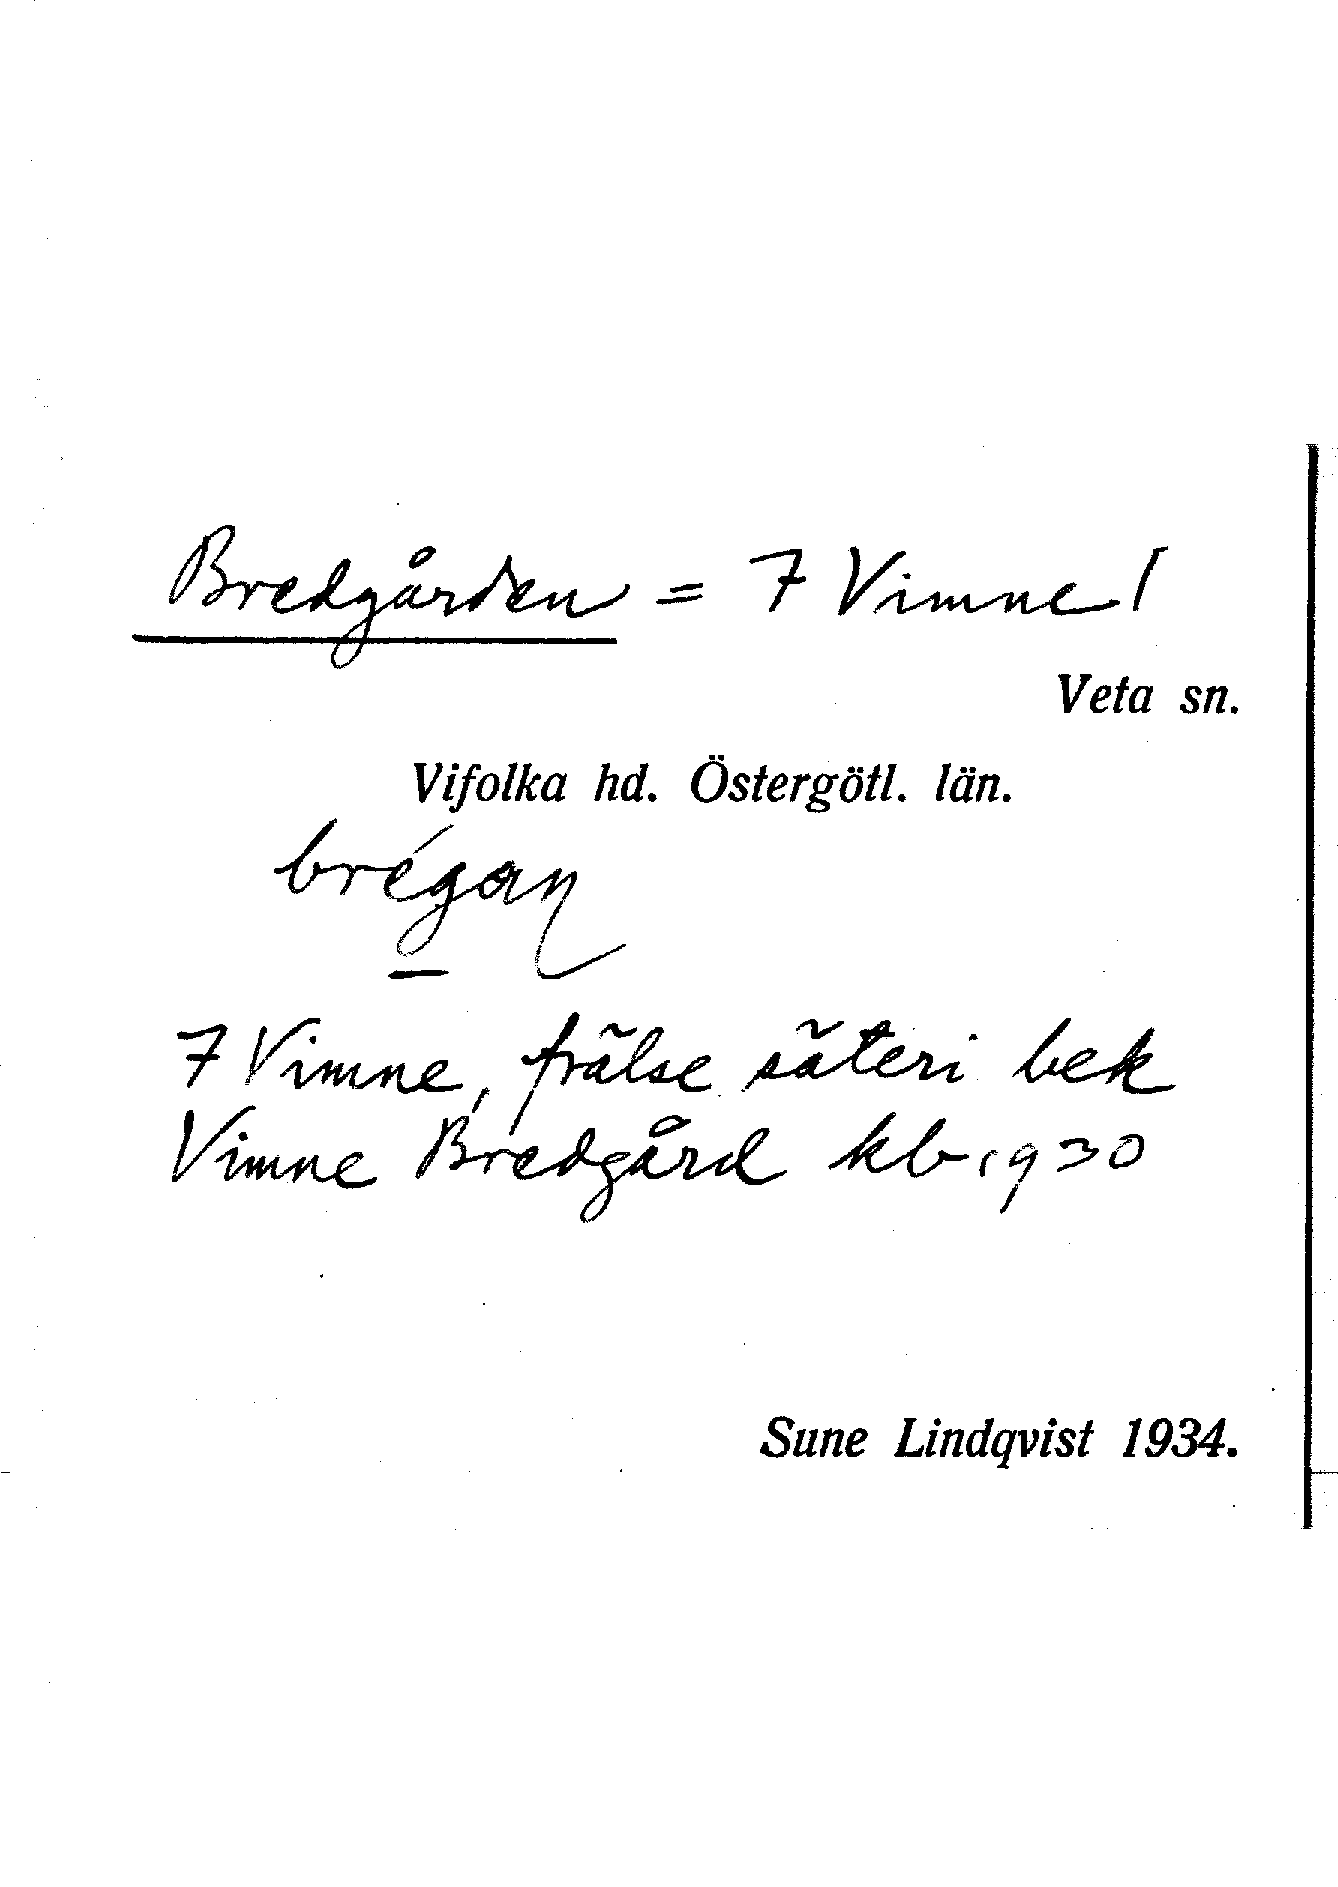 Bredgården = 7 Vimne!
Veta sn.
Vifolka hd. Östergötl. län.
brégaɳ
7 Vimne, frälse säteri bek
Vimne Bredgård kb 1930
Sune Lindqvist 1934.